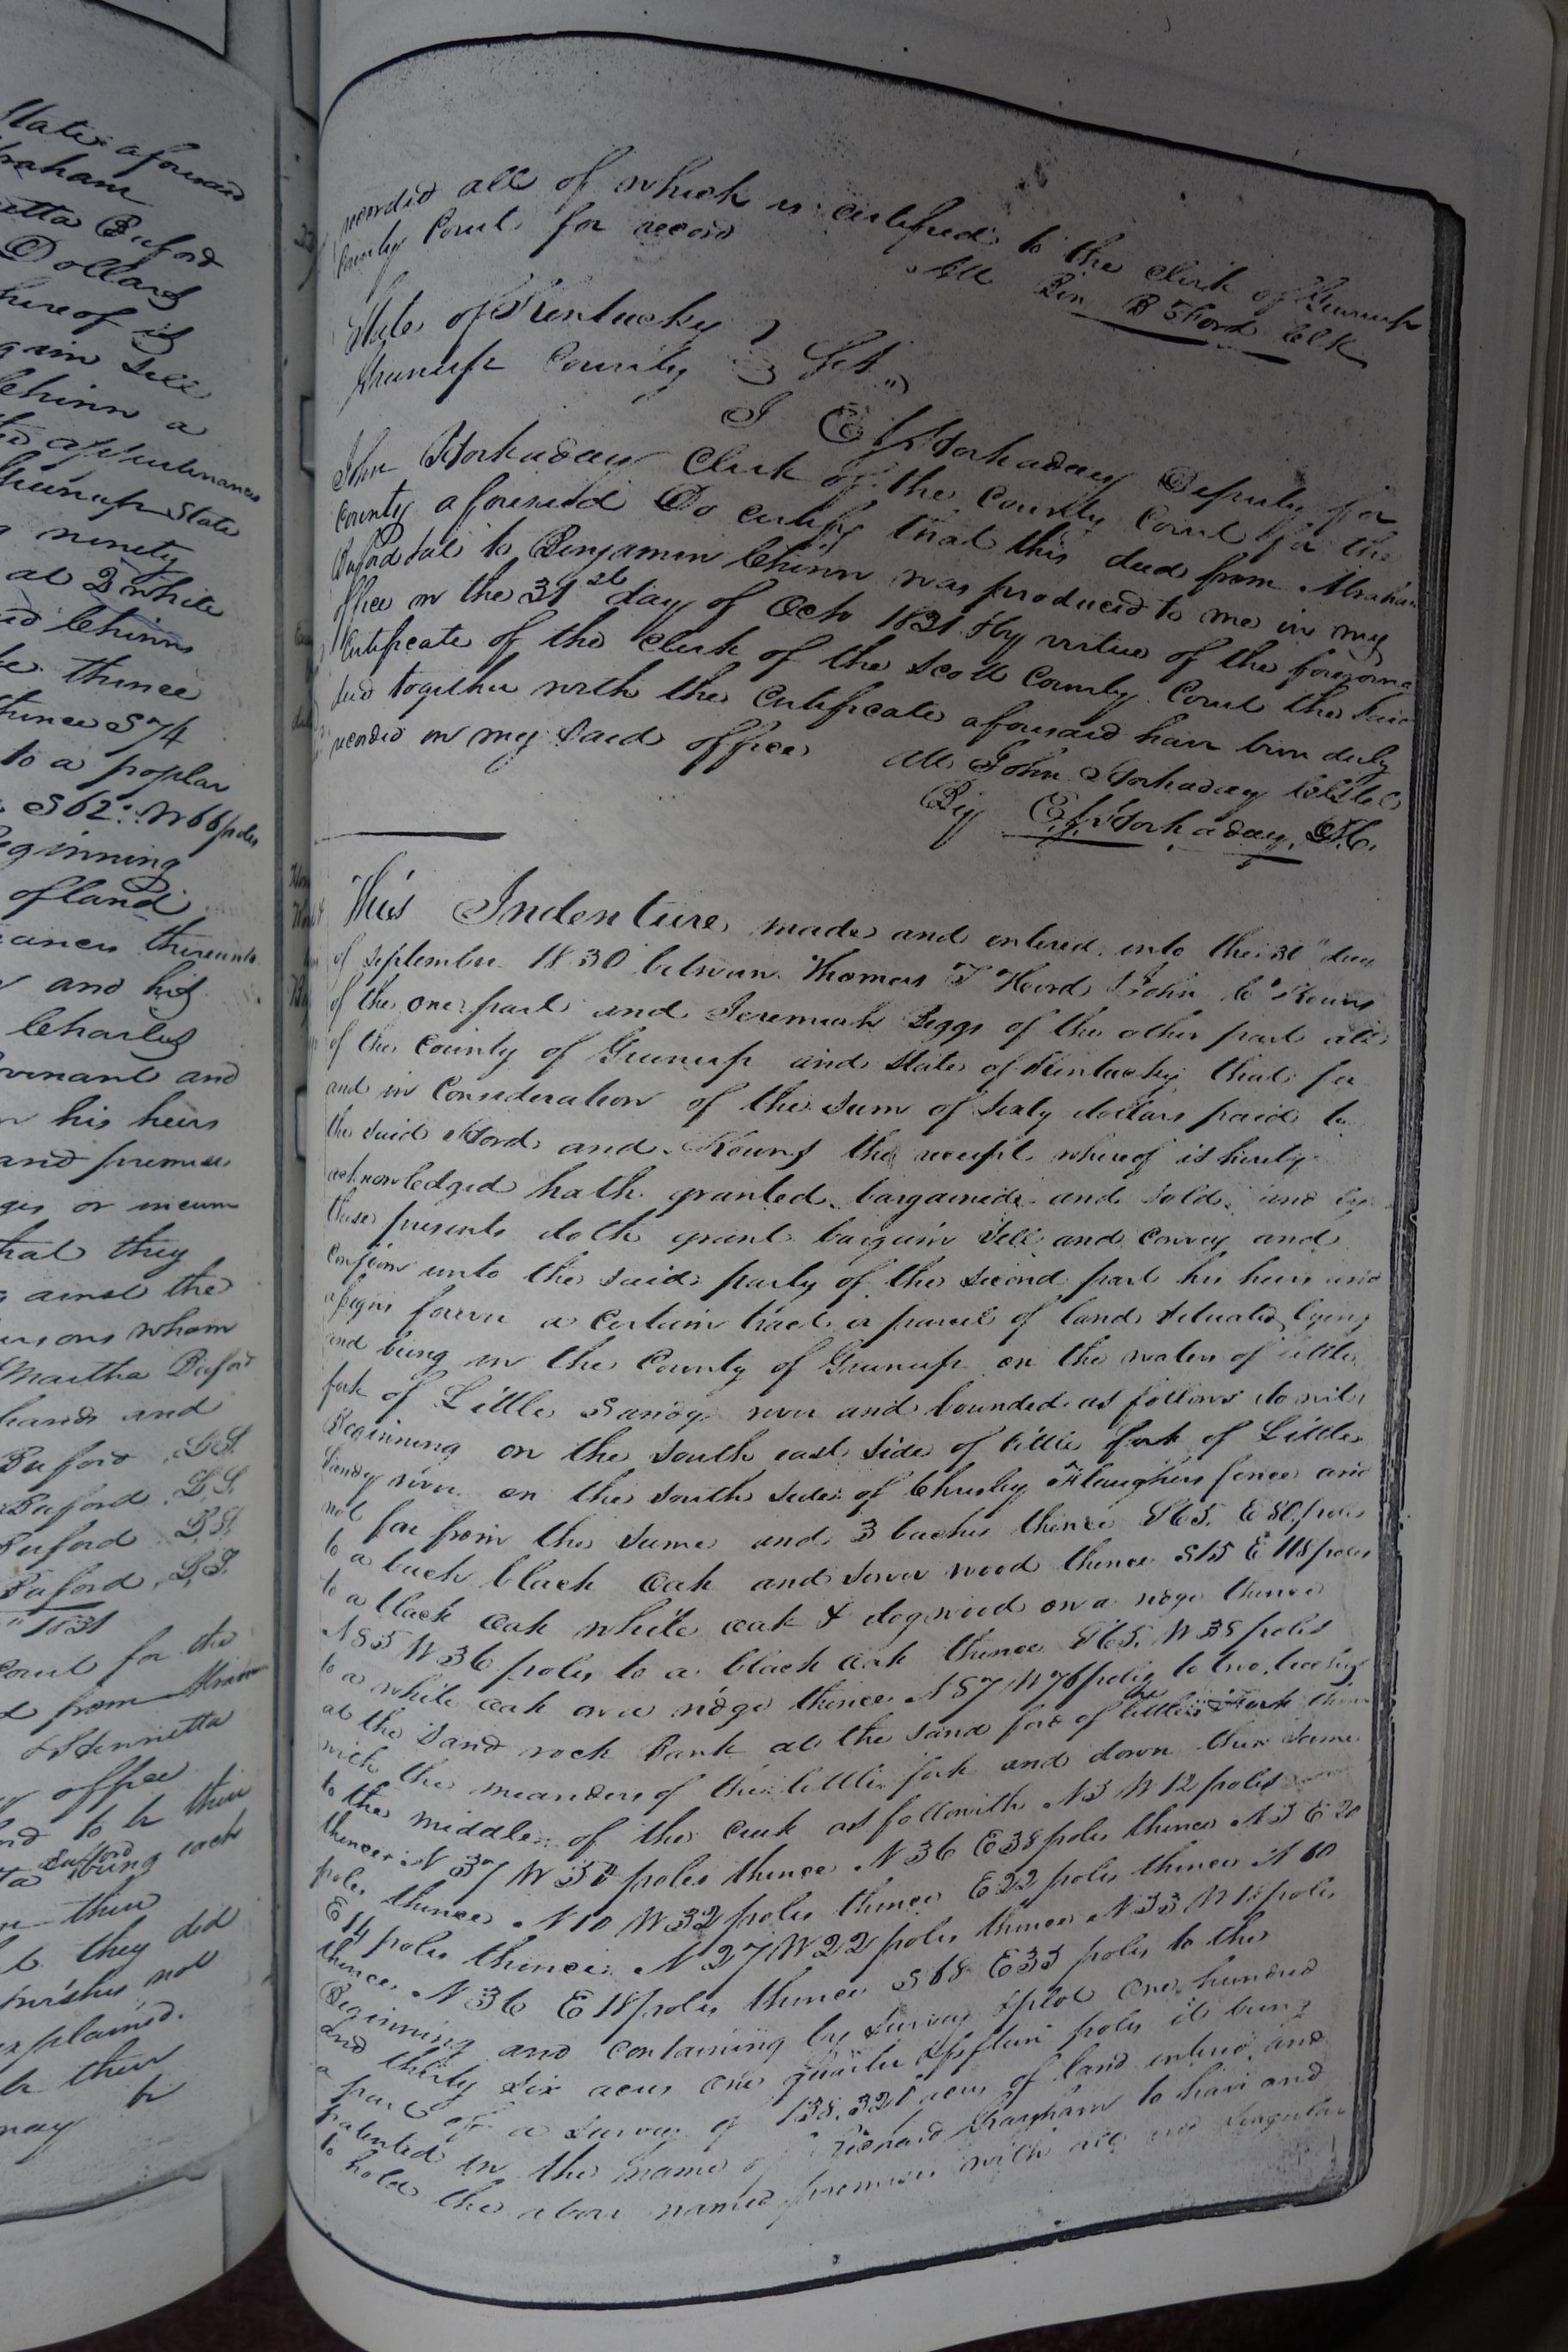 State aforesaid
Abraham
etta Buford
Dollars
hereof is
gain Sell
Chinn a
appurtenances
Greenup State
ninety
at 2 white
Chinns
thence
thence S 74
to a poplar
S 62 W 66 poles
Beginning
of land
ances thereunto
and his
Charles
venant and
his heirs
and premises
ges or incum
that they
against the
ersons whom
Martha Buford
hands and
Buford L.S.
Buford L.S.
Buford L.S.
Buford L.S.
1831
Court for the
from
& Henrietta
office
to be their
Buford
being each
then
they did
wishes not
explained.
their
may be
recorded all of which is certified to the Clerk of Greenup
County Court for record
Att Ben B Ford Clk
State of Kentucky
Greenup County Sct
I E F Horkaday Deputy for
John Horkaday Clerk of the County Court for the
County aforesaid Do certify that this deed from Abraham
Buford &al to Benjamin Chinn was produced to me in my
office on the 31st day of Oct 1831 By virtue of the foregoing
Certificate of the Clerk of the Scott County Court the said
deed together with the Certificate aforesaid have been duly
recorded in my said office
Att John Horkaday
By E. F. Horkaday, D.C.
This Indenture made and entered into the 30" day
of September 1830 between Thomas T Hord & John C Kouns
of the one part and Jeremiah Liggs of the other part all
of the County of Greenup and State of Kentucky that for
and in Consideration of the sum of sixty dollars paid to
the said Hord and Kouns the receipt whereof is hereby
acknowledged hath granted bargained and sold and by
these presents doth grant bargain sell and convey and
Confirm unto the said party of the second part his heirs and
assigns forever a certain tract or parcel of land situate lying
and being in the County of Greenup on the waters of little
fork of Little Sandy river and bounded as follows to wit,
Beginning on the south east side of little fork of Little
Sandy river on the south side of Chrisley Flaughers fence and
not far from the same and 3 beaches thence S 65 E 80 poles
to a beach black oak and sower wood thence S 15 E 118 poles
to a black oak white oak & dogwood on a ridge thence
N 85 W 36 poles to a black oak thence S 65 W 38 poles
to a white oak on a ridge thence N 57 W 78 poles to two beeches
at the sand rock bank at the sand ford of the little Fork thence
with the meanders of the little fork and down the same
to the middle of the creek as followith N 3 W 12 poles
thence N 37 W 30 poles thence N 36 E 38 poles thence N 5 E 20
poles thence N 10 W 32 poles thence E 22 poles thence N 60
E 14 poles thence N 27 W 22 poles thence N 33 W 18 poles
thence N 36 E 18 poles thence S 68 E 35 poles to the
Beginning and containing by survey & plot one hundred
and thirty six acres one quarter & fifteen poles it being
a part of a survey of 138,321 acres of land entered and
patented in the name of Richard Graham to have and
to hold the above named premises with all and singular